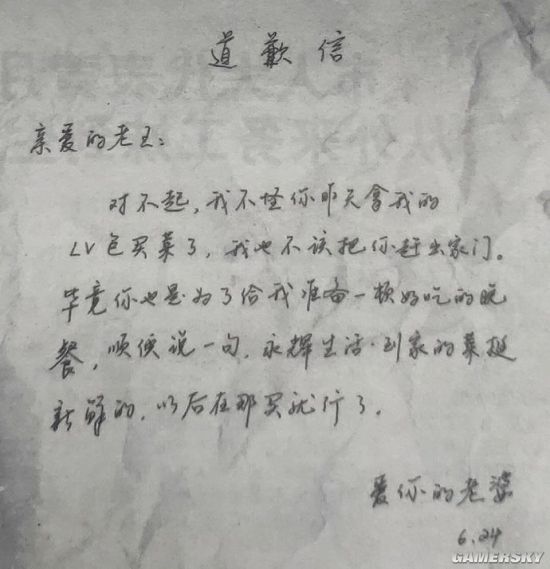 道歉信
亲爱的老王：
对不起，我不怪你昨天拿我的
LV包买菜了，我也不该把你赶出家门。
毕竟你也是为了给我准备一顿好吃的晚
餐，顺便说一句，永辉生活·到家的菜挺
新鲜的，以后在那买就行了。
爱你的老婆
6.24
GAMERSKY